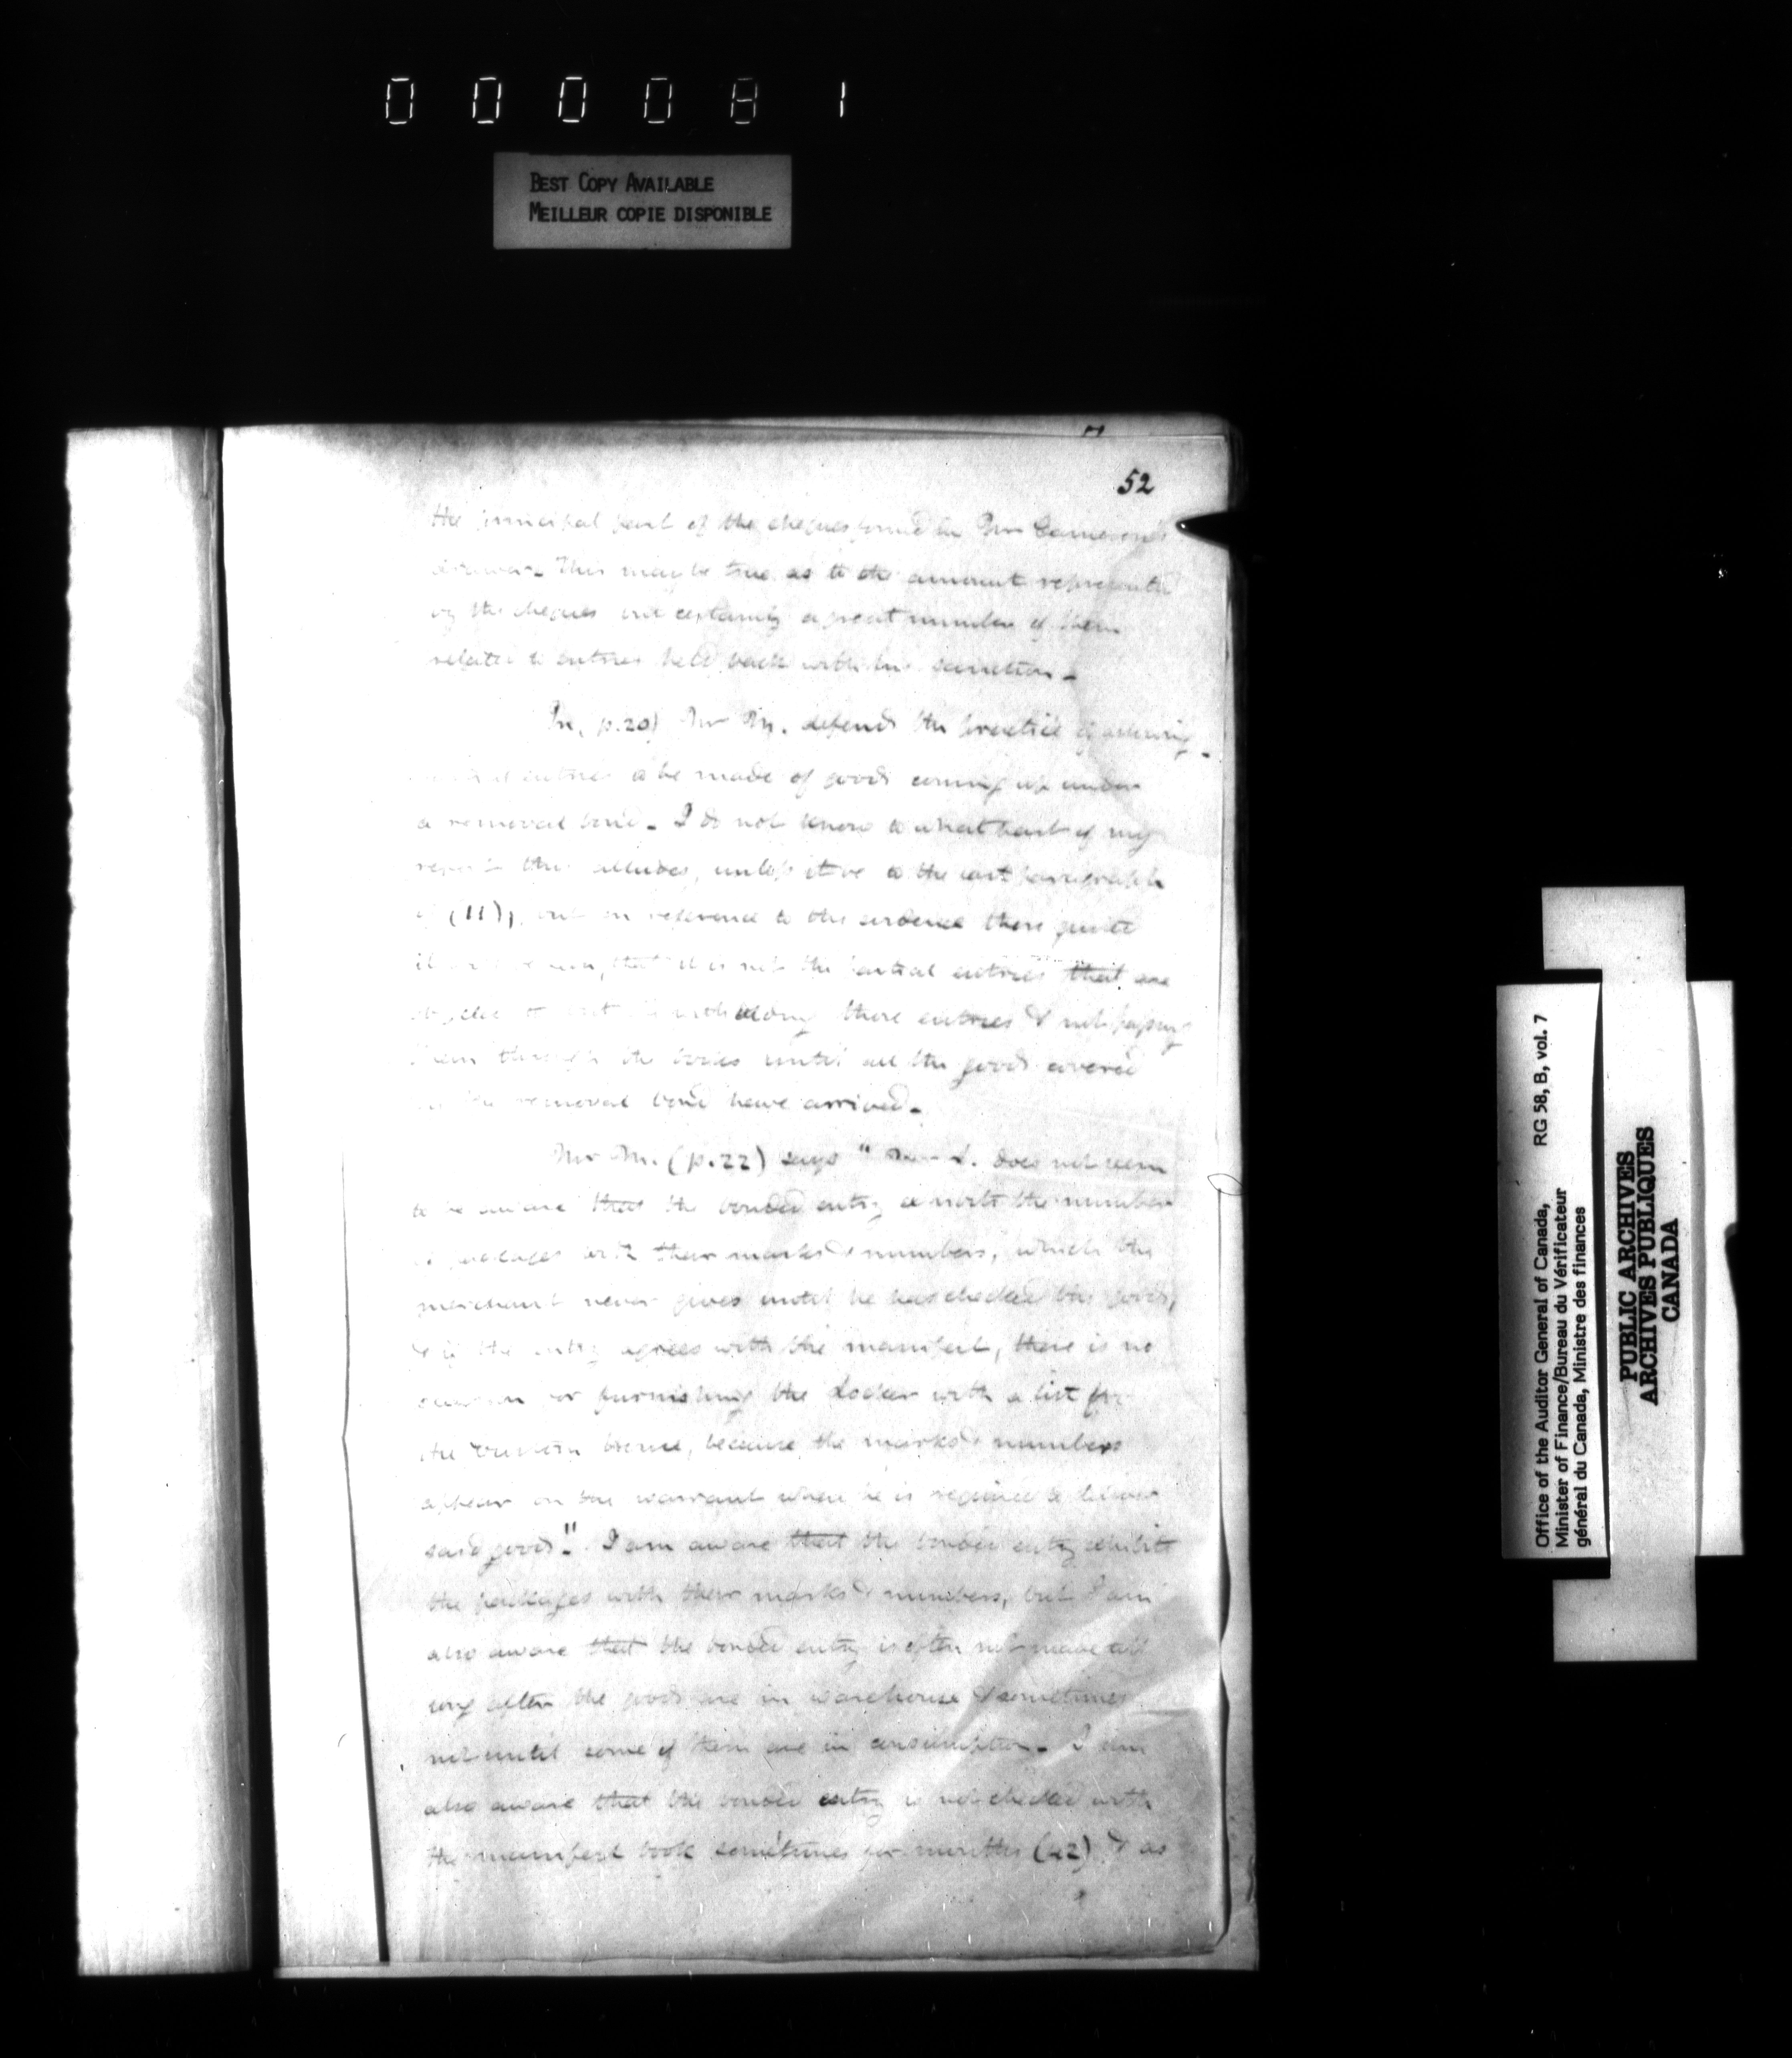 000081
BEST COPY AVAILABLE
MEILLEUR COPIE DISPONIBLE
52
the principal part of the cheques found in Mr Cameron's
drawer. This may be true as to the amount represented
by the cheques but certainly a great number of them
related to entries held back with his sanction.
In, p.20) Mr M. defends the practice of allowing
entries to be made of goods coming up under
a removal bond. I do not know to what part of my
report this alludes, unless it be to the last paragraph
of (11), but on reference to the evidence there quoted
it that it is not the partial entries that are
objected to but withholding these entries & not passing
them through the books until all the goods covered
by the removal bond have arrived.
Mr M. (p.22) says " Mr L. does not seem
to be aware that the bonded entry the number
of packages with their marks & numbers, which the
merchant never gives until he has checked his goods,
& if the entry agrees with the manifest, there is no
occasion for furnishing the Locker with a list for
the Custom House, because the marks & numbers
appear on the warrant when he is required to deliver
said goods." I am aware that the bonded entry exhibits
the packages with their marks & numbers, but I am
also aware that the bonded entry is often not made till
long after the goods are in warehouse & sometimes
not until some of them are in consumption. I am
also aware that the bonded entry is not checked with
the manifest book sometimes for months (42) & as
Office of the Auditor General of Canada, RG 58, B, vol. 7
Minister of Finance/Bureau du Vérificateur
général du Canada, Ministre des finances
PUBLIC ARCHIVES
ARCHIVES PUBLIQUES
CANADA